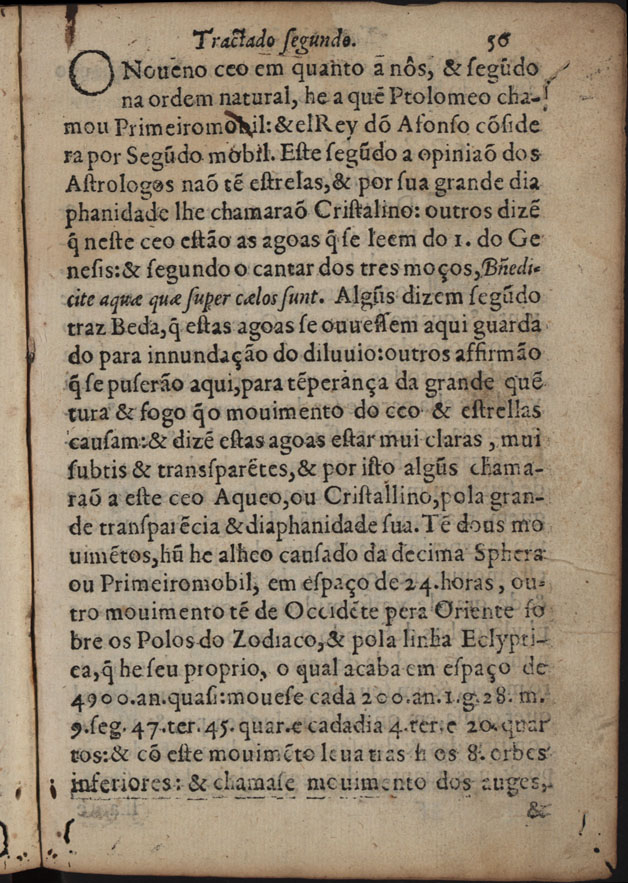 Tractado ſegundo. 56
O Noueno ceo em quanto ā nôs, & ſegũdo
na ordem natural, he a quẽ Ptolomeo cha-
mou Primeiromobil: & elRey dõ Afonſo cõſide
ra por Segũdo mobil. Eſte ſegũdo a opiniaõ dos
Aſtrologos naõ tẽ eſtrelas, & por ſua grande dia
phanidade lhe chamaraõ Criſtalino: outros dizẽ
q̃ neſte ceo eſtão as agoas q̃ ſe leem do 1. do Ge
neſis: & ſegundo o cantar dos tres moços, Bñedi-
cite aquæ quæ ſuper cælos ſunt. Algũs dizem ſegũdo
traz Beda, q̃ eſtas agoas ſe ouueſſem aqui guarda
do para innundação do diluuio: outros affirmão
q̃ ſe puſerão aqui, para tẽperança da grande quẽ
tura & fogo q̃ o mouimento do ceo & eſtrellas
cauſam: & dizẽ eſtas agoas eſtar mui claras, mui
ſubtis & transſparẽtes, & por iſto algũs chama-
raõ a eſte ceo Aqueo, ou Criſtallino, pola gran-
de tranſparẽcia & diaphanidade ſua. Tẽ dous mo
uimẽtos, hũ he alheo cauſado da decima Sphera
ou Primeiromobil, em eſpaço de 24. horas, ou-
tro mouimento tẽ de Occidẽte pera Oriente ſo
bre os Polos do Zodiaco, & pola linha Eclypti-
ca, q̃ he ſeu proprio, o qual acaba em eſpaço de
4900. an. quaſi: moueſe cada 200. an. 1. g. 28. m.
9. ſeg. 47. ter. 45. quar. e cada dia 4. ter. e 20. quar
tos: & cõ eſte mouimẽto leua tras ſi os 8. orbes
inferiores: & chamaſe mouimento dos auges,
&